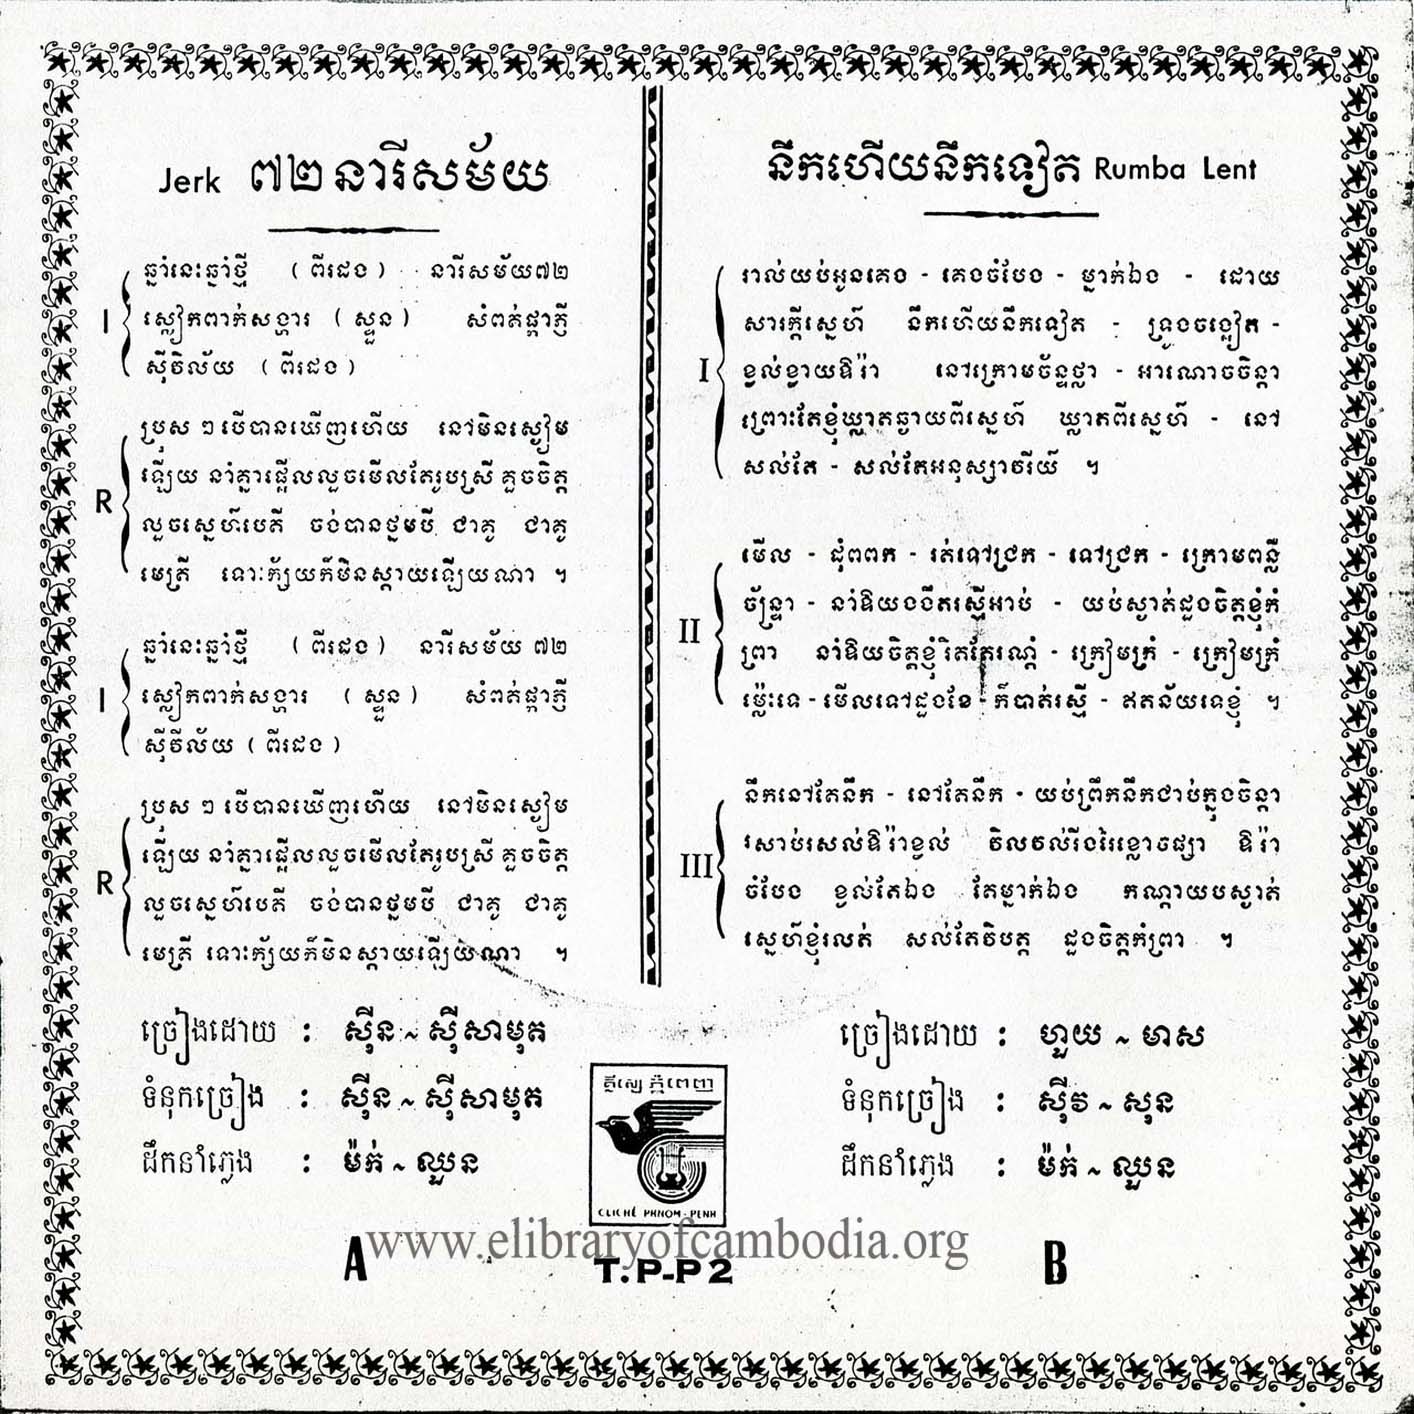 Jerk ៧២ នារីសម័យ
I
ឆ្នាំនេះឆ្នាំថ្មី ( ពីរដង ) នារីសម័យ៧២
ស្លៀកពាក់សង្ហារ ( ស្ទួន ) សំពត់ផ្កាភ្ញី
ស៊ីវិល័យ ( ពីរដង )
R
ប្រុស ៗ បើបានឃើញហើយ នៅមិនស្ងៀម
ឡើយ នាំគ្នាផ្អើលលួចមើលតែរូបស្រី គួចចិត្ត
លួចស្នេហ៍បេតី ចង់បានថ្នមបី ជាគូ ជាគូ
មេត្រី ទោះក្ស័យក៏មិនស្តាយឡើយណា ។
I
ឆ្នាំនេះឆ្នាំថ្មី ( ពីរដង ) នារីសម័យ ៧២
ស្លៀកពាក់សង្ហារ ( ស្ទួន ) សំពត់ផ្កាភ្ញី
ស៊ីវីល័យ ( ពីរដង )
R
ប្រុស ៗ បើបានឃើញហើយ នៅមិនស្ងៀម
ឡើយ នាំគ្នាផ្អើលលួចមើលតែរូបស្រី គួចចិត្ត
លួចស្នេហ៍បេតី ចង់បានថ្នមបី ជាគូ ជាគូ
មេត្រី ទោះក្ស័យក៏មិនស្តាយឡើយណា ។
ច្រៀងដោយ : ស៊ីន ~ ស៊ីសាមុត
ទំនុកច្រៀង : ស៊ីន ~ ស៊ីសាមុត
ដឹកនាំភ្លេង : ម៉ក់ ~ ឈួន
A
នឹកហើយនឹកទៀត Rumba Lent
I
រាល់យប់អូនគេង - គេងចំបែង - ម្នាក់ឯង - ដោយ
សារក្តីស្នេហ៍ នឹកហើយនឹកទៀត - ទ្រូងចង្អៀត -
ខ្វល់ខ្វាយឱរ៉ា នៅក្រោមច័ន្ទថ្លា - អាណោចចិន្តា
ព្រោះតែខ្ញុំឃ្លាតឆ្ងាយពីស្នេហ៍ ឃ្លាតពីស្នេហ៍ - នៅ
សល់តែ - សល់តែអនុស្សាវរីយ៍ ។
II
មើល - ដុំពពក - រត់ទៅជ្រក - ទៅជ្រក - ក្រោមពន្លឺ
ច័ន្ទ្រា - នាំឱយងងឹតរស្មីអាប់ - យប់ស្ងាត់ដួងចិត្តខ្ញុំកំ
ព្រា នាំឱយចិត្តខ្ញុំរិតតែរណ្តំ - ក្រៀមក្រំ - ក្រៀមក្រំ
ម្ល៉េះទេ - មើលទៅដួងខែ - ក៏បាត់រស្មី - ឥតន័យទេខ្ញុំ ។
III
នឹកនៅតែនឹក - នៅតែនឹក - យប់ព្រឹកនឹកជាប់ក្នុងចិន្តា
រសាប់រសល់ឱរ៉ាខ្វល់ វិលវល់រីងរៃខ្លោចផ្សា ឱរ៉ា
ចំបែង ខ្វល់តែឯង តែម្នាក់ឯង កណ្តាយបស្ងាត់
ស្នេហ៍ខ្ញុំរលត់ សល់តែវិបត្ត ដួងចិត្តកំព្រា ។
ច្រៀងដោយ : ហួយ ~ មាស
ទំនុកច្រៀង : ស៊ីវ ~ សុន
ដឹកនាំភ្លេង : ម៉ក់ ~ ឈួន
B
គ្លីស្សេ ភ្នំពេញ
CLICHÉ PHNOM-PENH
www.elibraryofcambodia.org
T.P-P2